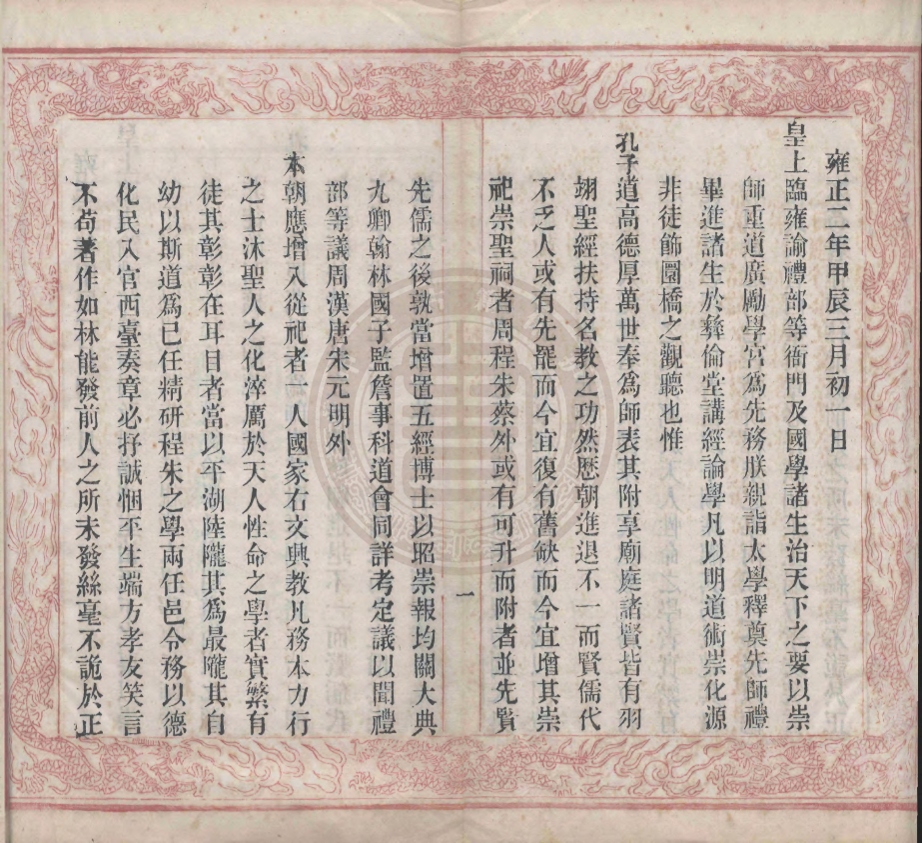 雍正二年甲辰三月初一日
皇上臨雍諭禮部等衙門及國學諸生治天下之要以崇
師重道廣勵學宮爲先務朕親詣太學釋奠先師禮
畢進諸生於彝倫堂講經論學凡以明道術崇化源
非徒飾圜橋之觀聽也惟
孔子道高德厚萬世奉爲師表其附享廟庭諸賢皆有羽
翊聖經扶持名教之功然歷朝進退不一而賢儒代
不乏人或有先罷而今宜復有舊缺而今宜增其崇
祀崇聖祠者周程朱蔡外或有可升而附者並先賢
一
先儒之後孰當增置五經博士以昭崇報均關大典
九卿翰林國子監詹事科道會同詳考定議以聞禮
部等議周漢唐宋元明外
本朝應增入從祀者一人國家右文典教凡務本力行
之士沐聖人之化淬厲於天人性命之學者實繁有
徒其彰彰在耳目者當以平湖陸隴其爲最隴其自
幼以斯道爲己任精研程朱之學兩任邑令務以德
化民入官西臺奏章必抒誠悃平生端方孝友笑言
不苟著作如林能發前人之所未發絲毫不詭於正